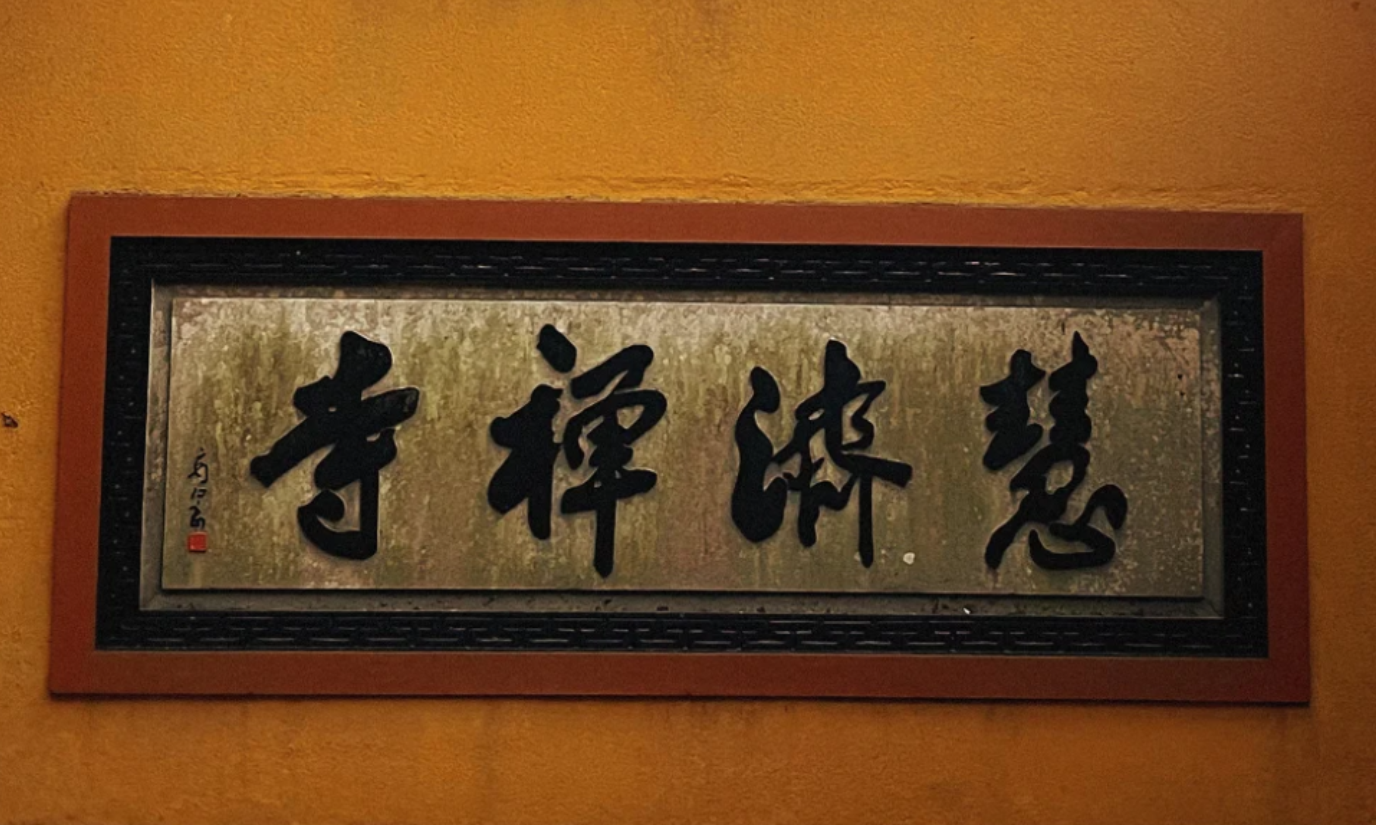 慧濟禪寺